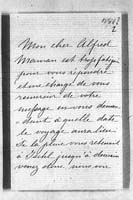 2
Mon cher Alfred
Maman est trop fatiguée
pour vous répondre
et me charge de vous
remercier de votre
message en vous deman-
dant à quelle date
le voyage aura lieu
Si la pluie vous retient
à Ischl jusqu'à demain
venez donc